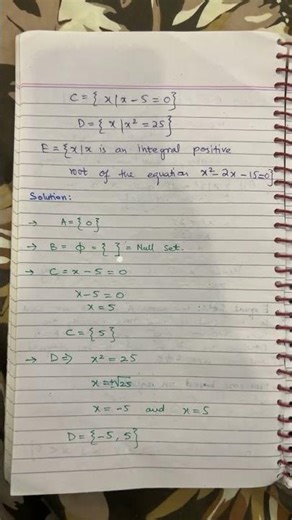 C = { x | x - 5 = 0 }
D = { x | x² = 25 }
E = { x | x is an integral positive
root of the equation x² - 2x - 15 = 0 }
Solution:
→ A = { 0 }
→ B = ϕ = { } = Null Set.
→ C = x - 5 = 0
x - 5 = 0
x = 5
C = { 5 }
→ D ⇒ x² = 25
x = ±√25
x = -5 and x = 5
D = { -5, 5 }